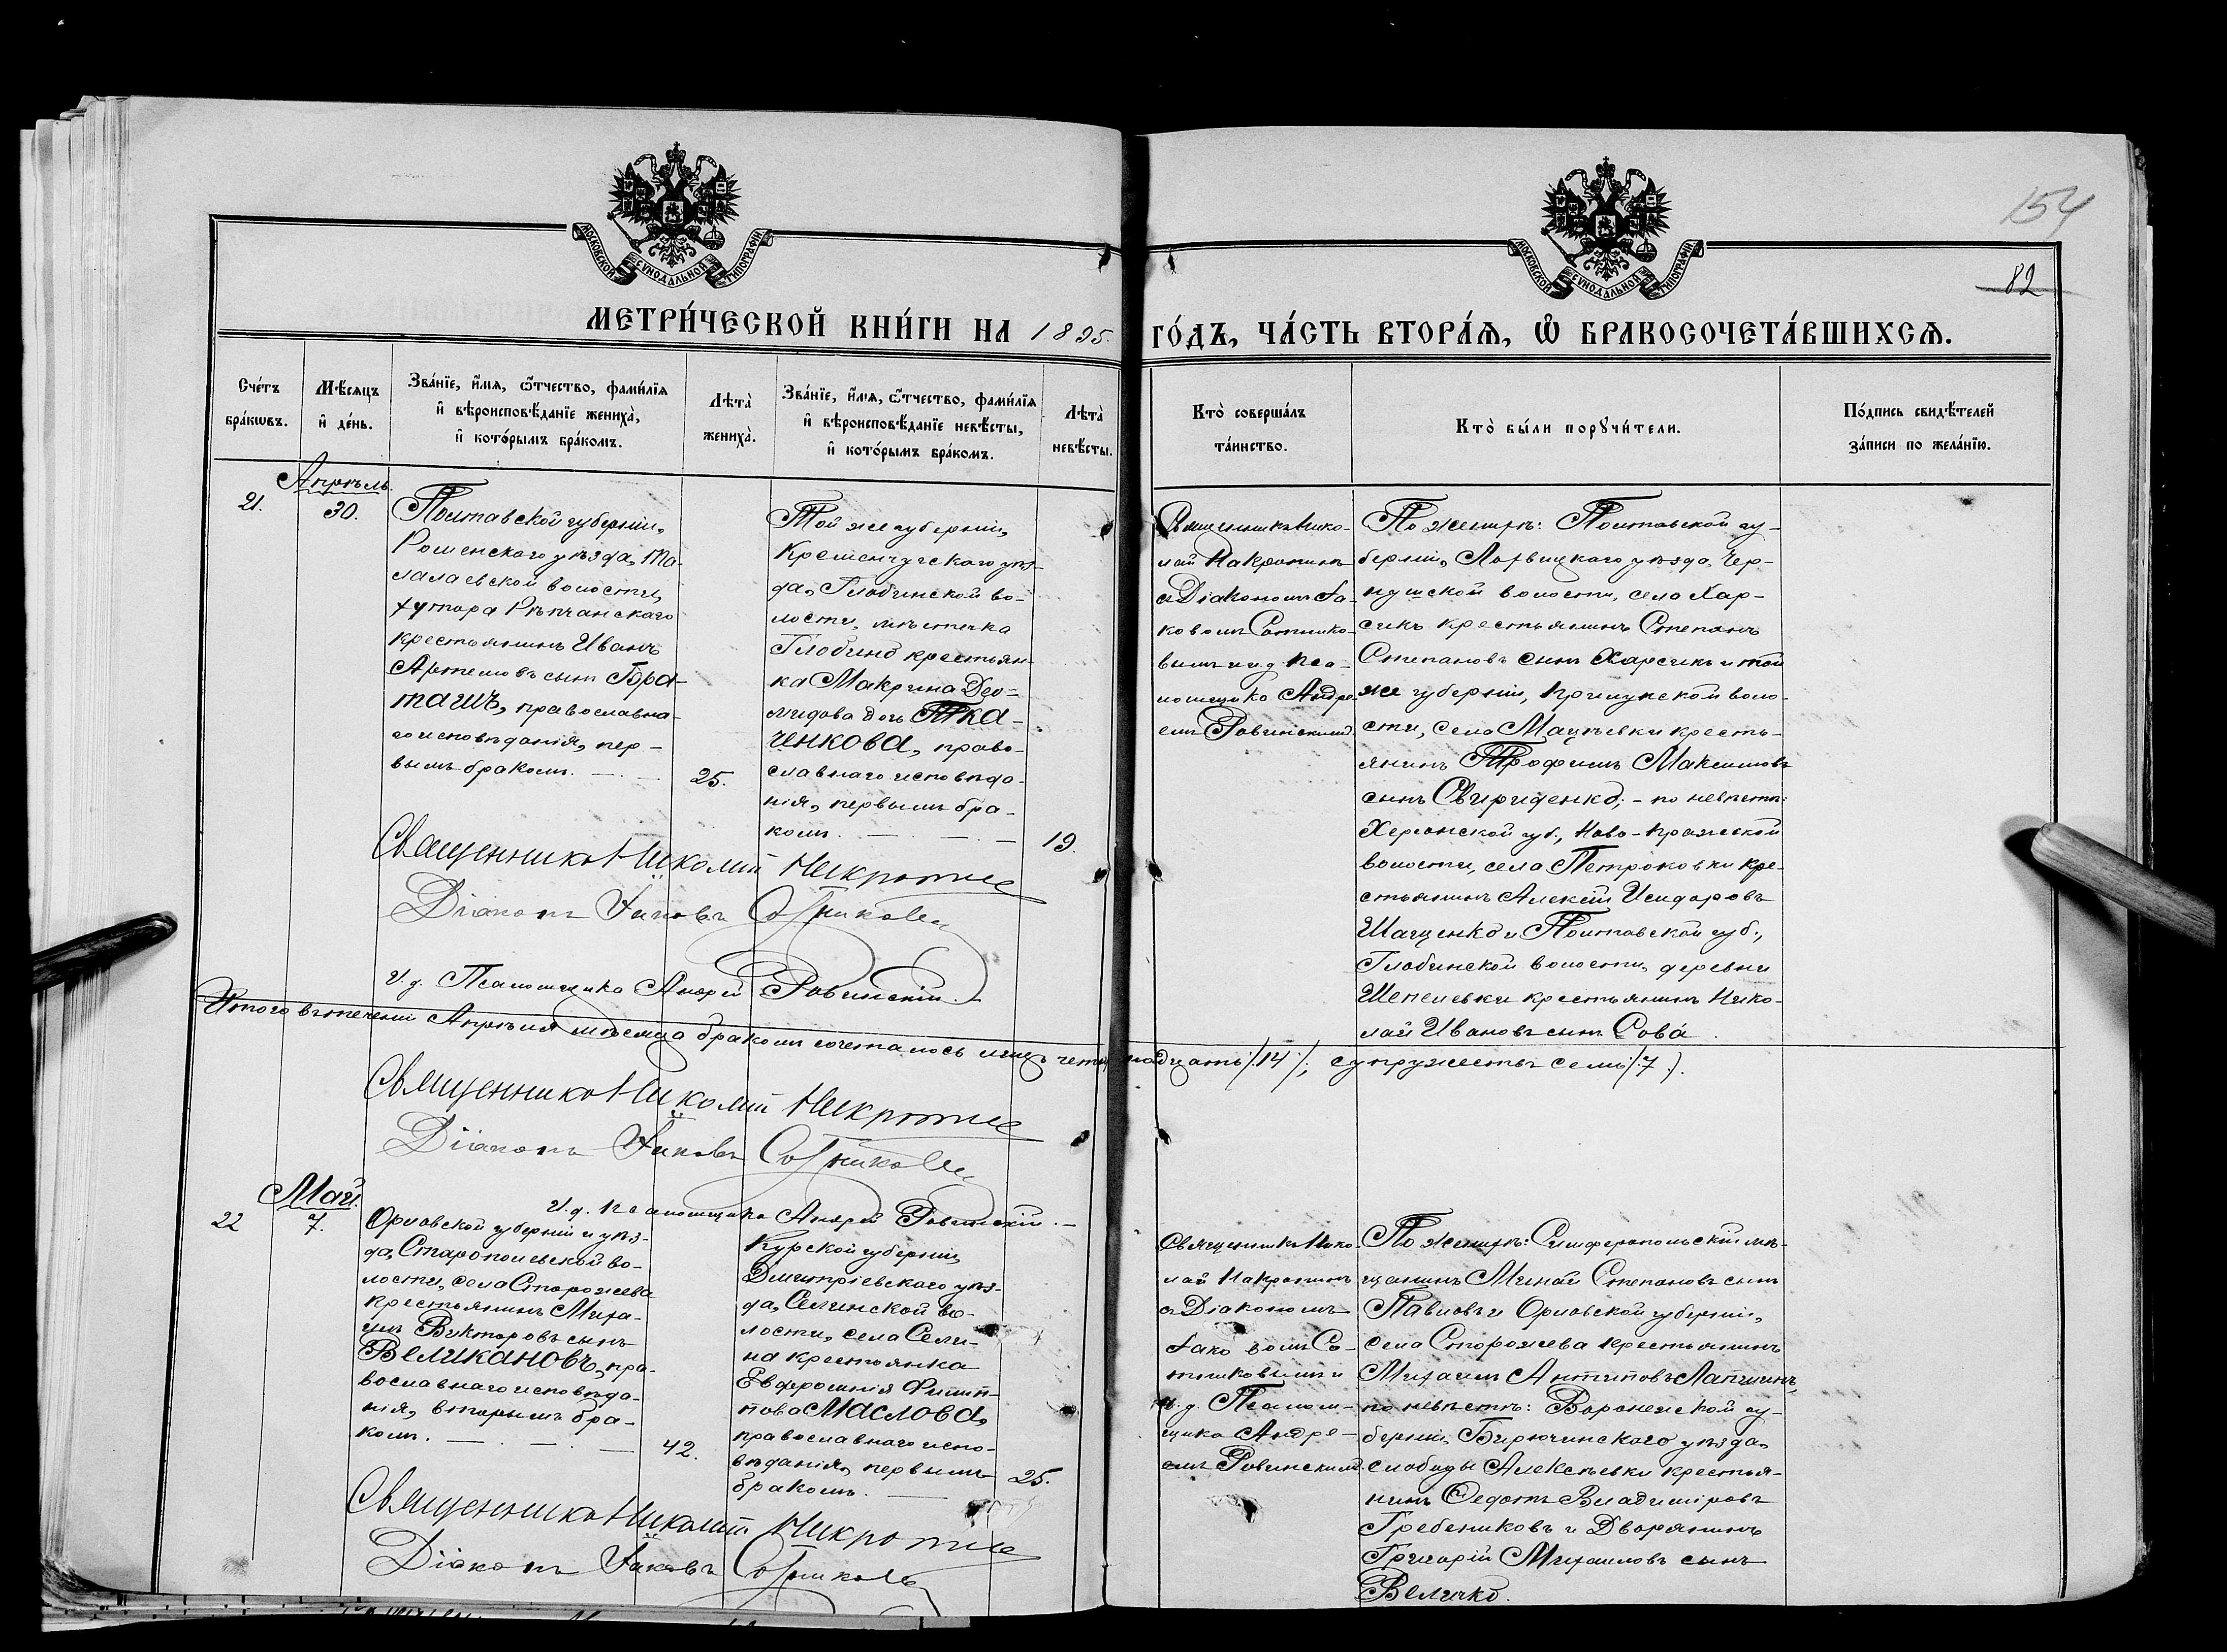 МОСКОВСКОЙ СѴНОДАЛЬНОЙ ТИПОГРАФІИ
МОСКОВСКОЙ СѴНОДАЛЬНОЙ ТИПОГРАФІИ
154
82
МЕТРИ́ЧЕСКОЙ КНИ́ГИ НА 1895.
ГО́ДЪ, ЧА́СТЬ ВТОРА́Я, Ѽ БРАКОСОЧЕТА́ВШИХСЯ.
Сче́тъ
бра́кѡвъ.
Мѣ́сяцъ
и҆ де́нь.
Зва́нїе, и҆́мя, ѻ҆́тчество, фами́лїя
и҆ вѣроисповѣ́данїе жениха̀,
и҆ кото́рымъ бра́комъ.
Лѣта̀
жениха̀.
Зва́нїе, и҆́мя, ѻ҆́тчество, фами́лїя
и҆ вѣроисповѣ́данїе невѣ́сты,
и҆ кото́рымъ бра́комъ.
Лѣта̀
невѣ́сты.
Кто̀ соверша́лъ
та́инство.
Кто̀ бы́ли порꙋчи́тели.
По́дпись свидѣ́телей
за́писи по жела́нїю.
Апрѣль.
21.
30.
Полтавской губерніи,
Роменскаго уѣзда, Та-
лалаевской волости,
хутора Рѣпчанскаго
крестьянинъ Иванъ
Артемовъ сынъ Бра-
ташъ, православна-
го исповѣданія, пер-
вымъ бракомъ.
25.
Той же губерніи,
Кременчугскаго уѣз-
да, Глобинской во-
лости, мѣстечка
Глобино крестьян-
ка Макрина Део-
мидова дочь Тка-
ченкова, право-
славнаго исповѣда-
нія, первымъ бра-
комъ.
19.
Священникъ Нико-
лай Накропинъ
съ Діакономъ Іа-
ковомъ Сотнико-
вымъ и и.д. пса-
ломщика Андре-
емъ Ровинскимъ.
По женихѣ: Полтавской гу-
берніи, Лохвицкаго уѣзда, Чер-
нушской волости, села Хар-
сикъ крестьянинъ Степанъ
Степановъ сынъ Харсикъ и той
же губерніи, волос-
сти, села Мацѣевки кресть-
янинъ Трофимъ Максимовъ
сынъ Свириденко; - по невѣстѣ:
Херсонской губ., Ново-Пражской
волости, села Петроковки кре-
стьянинъ Алексій Исидоровъ
Шаценко и Полтавской губ.,
Глобинской волости, деревни
Шепелевки крестьянинъ Нико-
лай Ивановъ сынъ Сова.
Священникъ Николай
Діаконъ Іаковъ Сотниковъ
И.д. Псаломщика Андрей Ровинскій.
Итого въ теченіи Апрѣля мѣсяца бракомъ сочеталось лицъ четырнадцать /14/, супружествъ семь /7/.
Священникъ Николай
Діаконъ Іаковъ Сотниковъ
И.д. Псаломщика Андрей Ровинскій.
Май.
22
7.
Орловской губерніи и уѣз-
да, Старопольской во-
лости, села Сторожева
крестьянинъ Миха-
илъ Викторовъ сынъ
Великановъ, пра-
вославнаго исповѣда-
нія, вторымъ бра-
комъ.
42.
Курской губерніи,
Дмитріевскаго уѣз-
да, Селинской во-
лости, села Сели-
на крестьянка
Евфросинія Филип-
пова Маслова,
православнаго испо-
вѣданія, первымъ
бракомъ.
25.
Священникъ Нико-
лай Накропинъ
съ Діакономъ
Іаковомъ Со-
тниковымъ и
и.д. Псалом-
щика Андре-
емъ Ровинскимъ.
По женихѣ: Симферопольскій мѣ-
щанинъ Минай Степановъ сынъ
Павловъ и Орловской губерніи,
села Сторожева крестьянинъ
Михаилъ Антиповъ Лапшинъ,
по невѣстѣ: Воронежской гу-
берніи, Бирюченскаго уѣзда,
слободы Алексѣевки крестья-
нинъ Ѳедотъ Владиміровъ
Гребениковъ и Дворянинъ
Григорій Михаиловъ сынъ
Величко.
Священникъ Николай
Діаконъ Іаковъ Сотниковъ